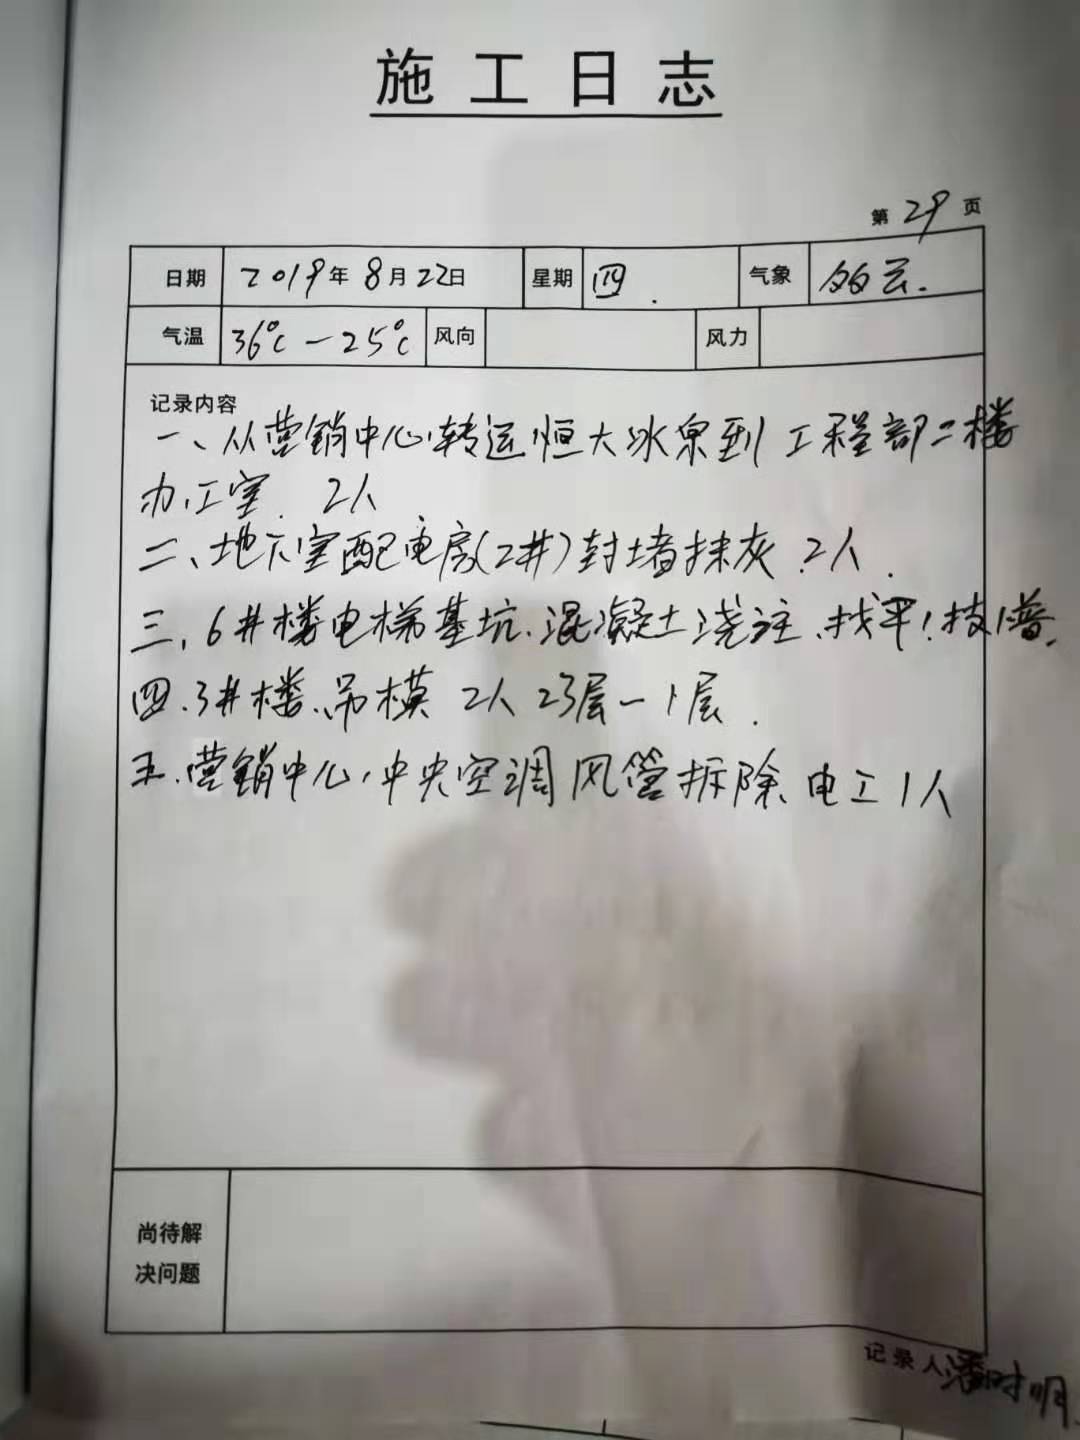 施工日志
第29页
日期 2019年8月22日 星期 四. 气象 多云.
气温 36℃—25℃ 风向 风力
记录内容
一、从营销中心转运恒大冰泉到工程部二楼
办工室. 2人
二、地下室配电房(2井)封堵抹灰.2人.
三、6#楼电梯基坑、混凝土浇注、找平1技1普.
四、3#楼、吊模 2人 23层—1层.
五、营销中心,中央空调风管拆除、电工1人
尚待解
决问题
记录人潘时明